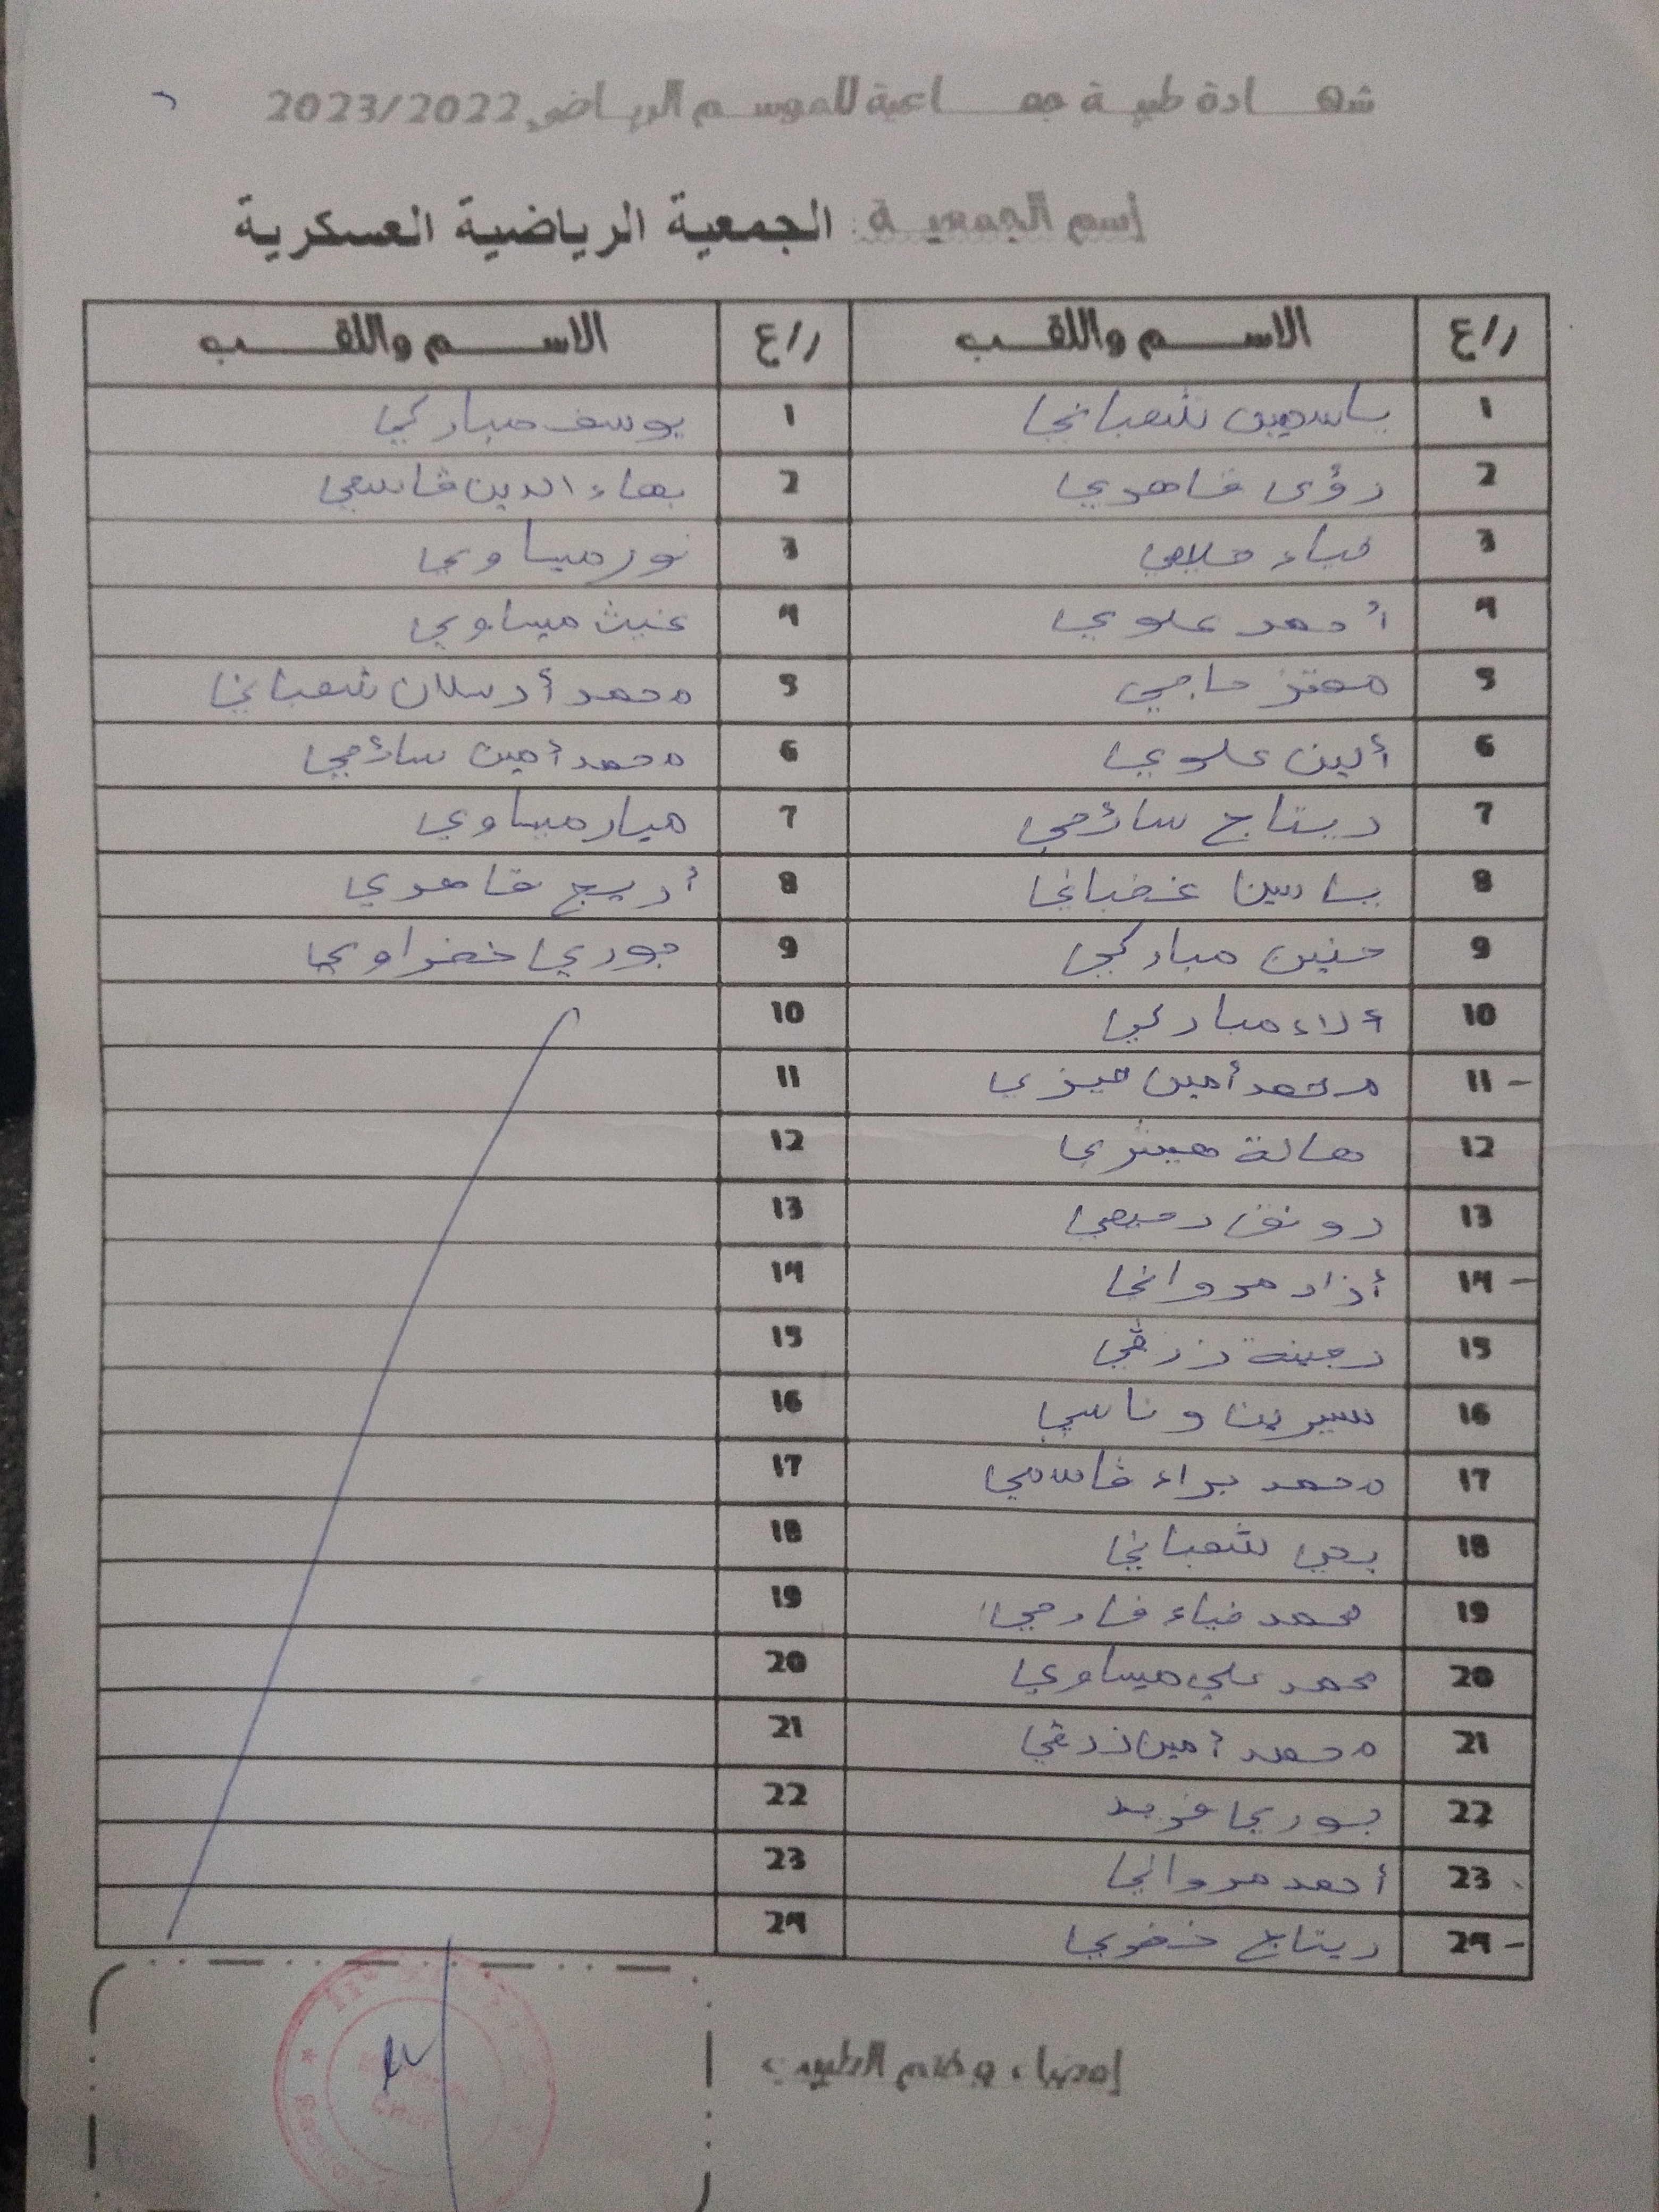 شهادة طبية جماعية للموسم الرياضي 2023/2022
إسم الجمعية : الجمعية الرياضية العسكرية
ر/ع الاسم واللقب ر/ع الاسم واللقب
1 ياسمين شعباني 1 يوسف مباركي
2 رؤى قاهري 2 بهاء الدين قاسمي
3 ضياء 3 نور ميساوي
4 أحمد علوي 4 غيث ميساوي
5 معتز حاجي 5 محمد أرسلان شعباني
6 ألين علوي 6 محمد أمين سائحي
7 ريتاج سائحي 7 ميار ميساوي
8 ياسين غضباني 8 أريج قاهري
9 حنين مباركي 9 جوري خضراوي
10 ألاء مباركي 10
11 محمد أمين 11
12 هالة 12
13 رونق 13
14 أزاد مرواني 14
15 زرقي 15
16 سيرين وناسي 16
17 محمد براء قاسمي 17
18 يحي شعباني 18
19 محمد ضياء 19
20 محمد علي ميساوي 20
21 محمد أمين زرقي 21
22 جوري فريد 22
23 أحمد مرواني 23
24 ريتاج 24
إمضاء وختم الطبيب